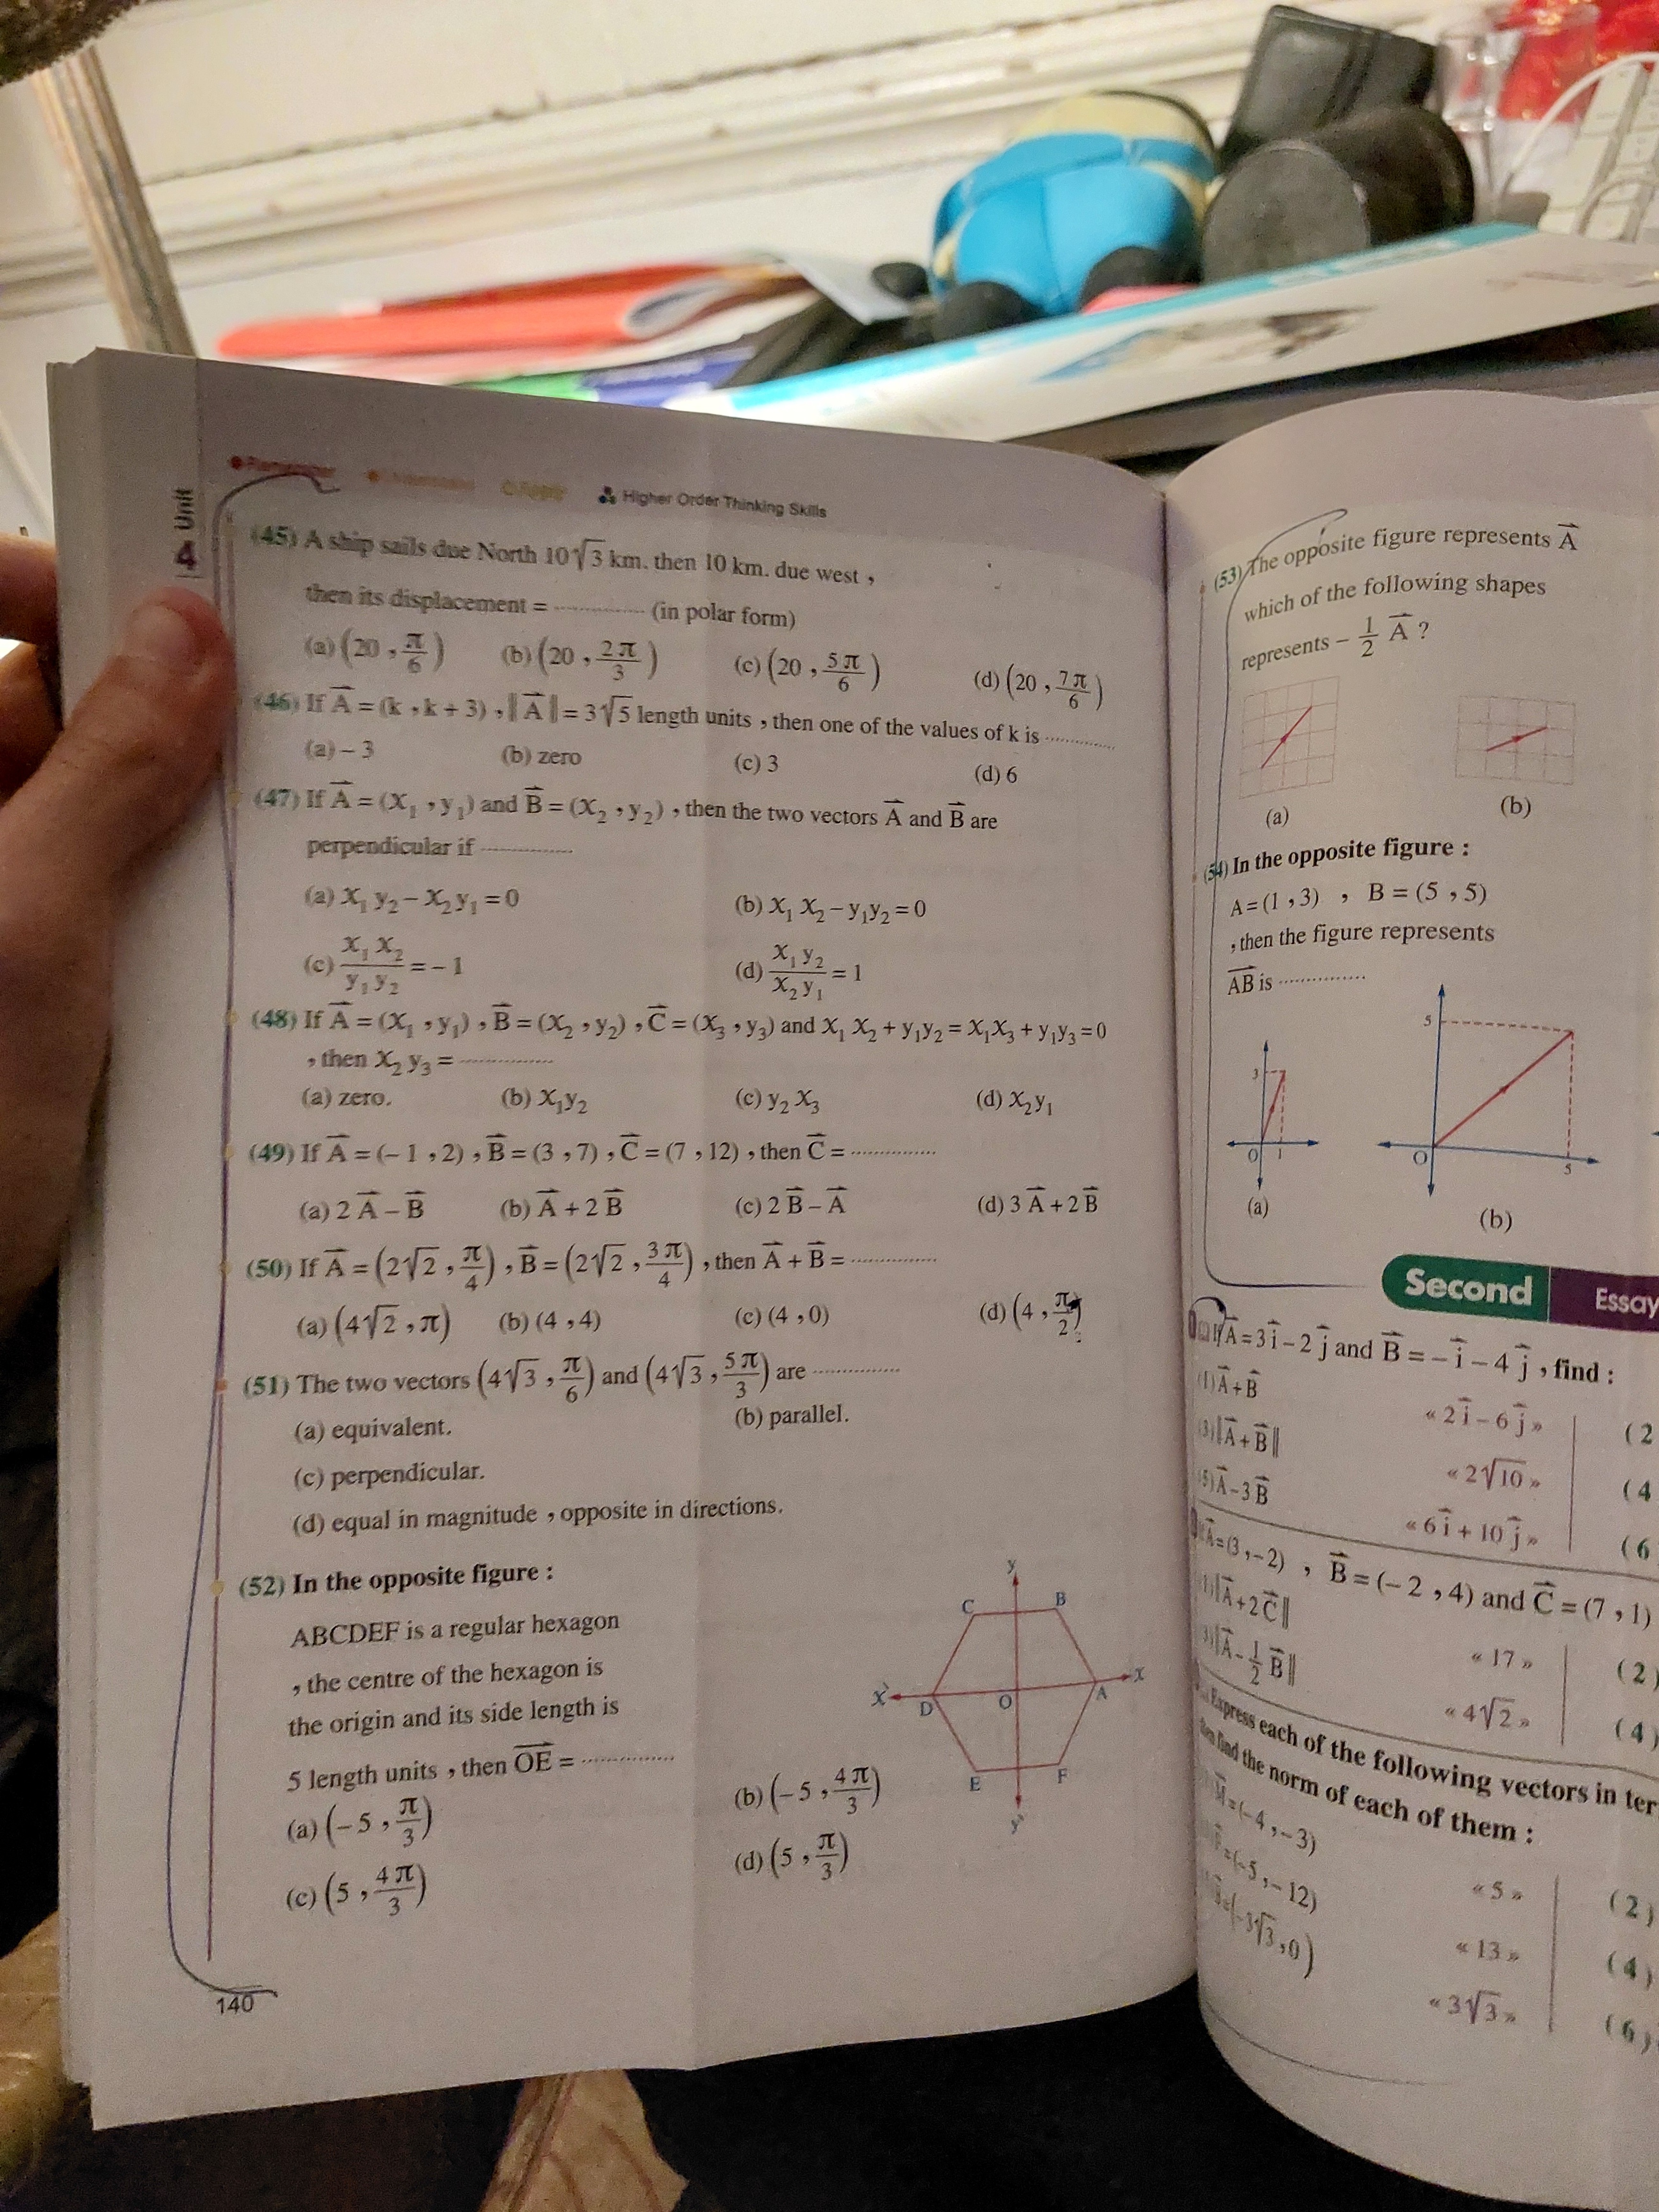 Unit
4
Higher Order Thinking Skills
(45) A ship sails due North 10√3 km. then 10 km. due west ,
then its displacement = ............... (in polar form)
(a) (20 , π/6) (b) (20 , 2π/3) (c) (20 , 5π/6) (d) (20 , 7π/6)
(46) If A⃗ = (k , k + 3) , ‖A⃗‖ = 3√5 length units , then one of the values of k is ...............
(a) – 3 (b) zero (c) 3 (d) 6
(47) If A⃗ = (X₁ , y₁) and B⃗ = (X₂ , y₂) , then the two vectors A⃗ and B⃗ are
perpendicular if ...............
(a) X₁ y₂ – X₂ y₁ = 0 (b) X₁ X₂ – y₁ y₂ = 0
(c) X₁ X₂ / y₁ y₂ = – 1 (d) X₁ y₂ / X₂ y₁ = 1
(48) If A⃗ = (X₁ , y₁) , B⃗ = (X₂ , y₂) , C⃗ = (X₃ , y₃) and X₁ X₂ + y₁ y₂ = X₁ X₃ + y₁ y₃ = 0
, then X₂ y₃ = ...............
(a) zero. (b) X₁ y₂ (c) y₂ X₃ (d) X₂ y₁
(49) If A⃗ = (– 1 , 2) , B⃗ = (3 , 7) , C⃗ = (7 , 12) , then C⃗ = ...............
(a) 2 A⃗ – B⃗ (b) A⃗ + 2 B⃗ (c) 2 B⃗ – A⃗ (d) 3 A⃗ + 2 B⃗
(50) If A⃗ = (2√2 , π/4) , B⃗ = (2√2 , 3π/4) , then A⃗ + B⃗ = ...............
(a) (4√2 , π) (b) (4 , 4) (c) (4 , 0) (d) (4 , π/2)
(51) The two vectors (4√3 , π/6) and (4√3 , 5π/3) are ...............
(a) equivalent. (b) parallel.
(c) perpendicular.
(d) equal in magnitude , opposite in directions.
(52) In the opposite figure :
ABCDEF is a regular hexagon
, the centre of the hexagon is
the origin and its side length is
5 length units , then OE⃗ = ...............
(a) (– 5 , π/3) (b) (– 5 , 4π/3)
(c) (5 , 4π/3) (d) (5 , π/3)
y
C B
x̀ D O A x
E F
ỳ
140
(53) The opposite figure represents A⃗
which of the following shapes
represents – 1/2 A⃗ ?
(a) (b)
(54) In the opposite figure :
A = (1 , 3) , B = (5 , 5)
, then the figure represents
AB⃗ is ...............
3
O 1
(a)
5
O 5
(b)
Second Essay
If A⃗ = 3 i⃗ – 2 j⃗ and B⃗ = – i⃗ – 4 j⃗ , find :
(1) A⃗ + B⃗ « 2 i⃗ – 6 j⃗ » (2
(3) ‖A⃗ + B⃗‖ « 2√10 » (4
(5) A⃗ – 3 B⃗ « 6 i⃗ + 10 j⃗ » (6
A⃗ = (3 , – 2) , B⃗ = (– 2 , 4) and C⃗ = (7 , 1)
‖A⃗ + 2 C⃗‖ « 17 » (2)
‖A⃗ – 1/2 B⃗‖ « 4√2 » (4)
Express each of the following vectors in
find the norm of each of them :
M⃗ = (– 4 , – 3) « 5 » (2)
= (– 5 , – 12) « 13 » (4)
(– 3√3 , 0) « 3√3 » (6)